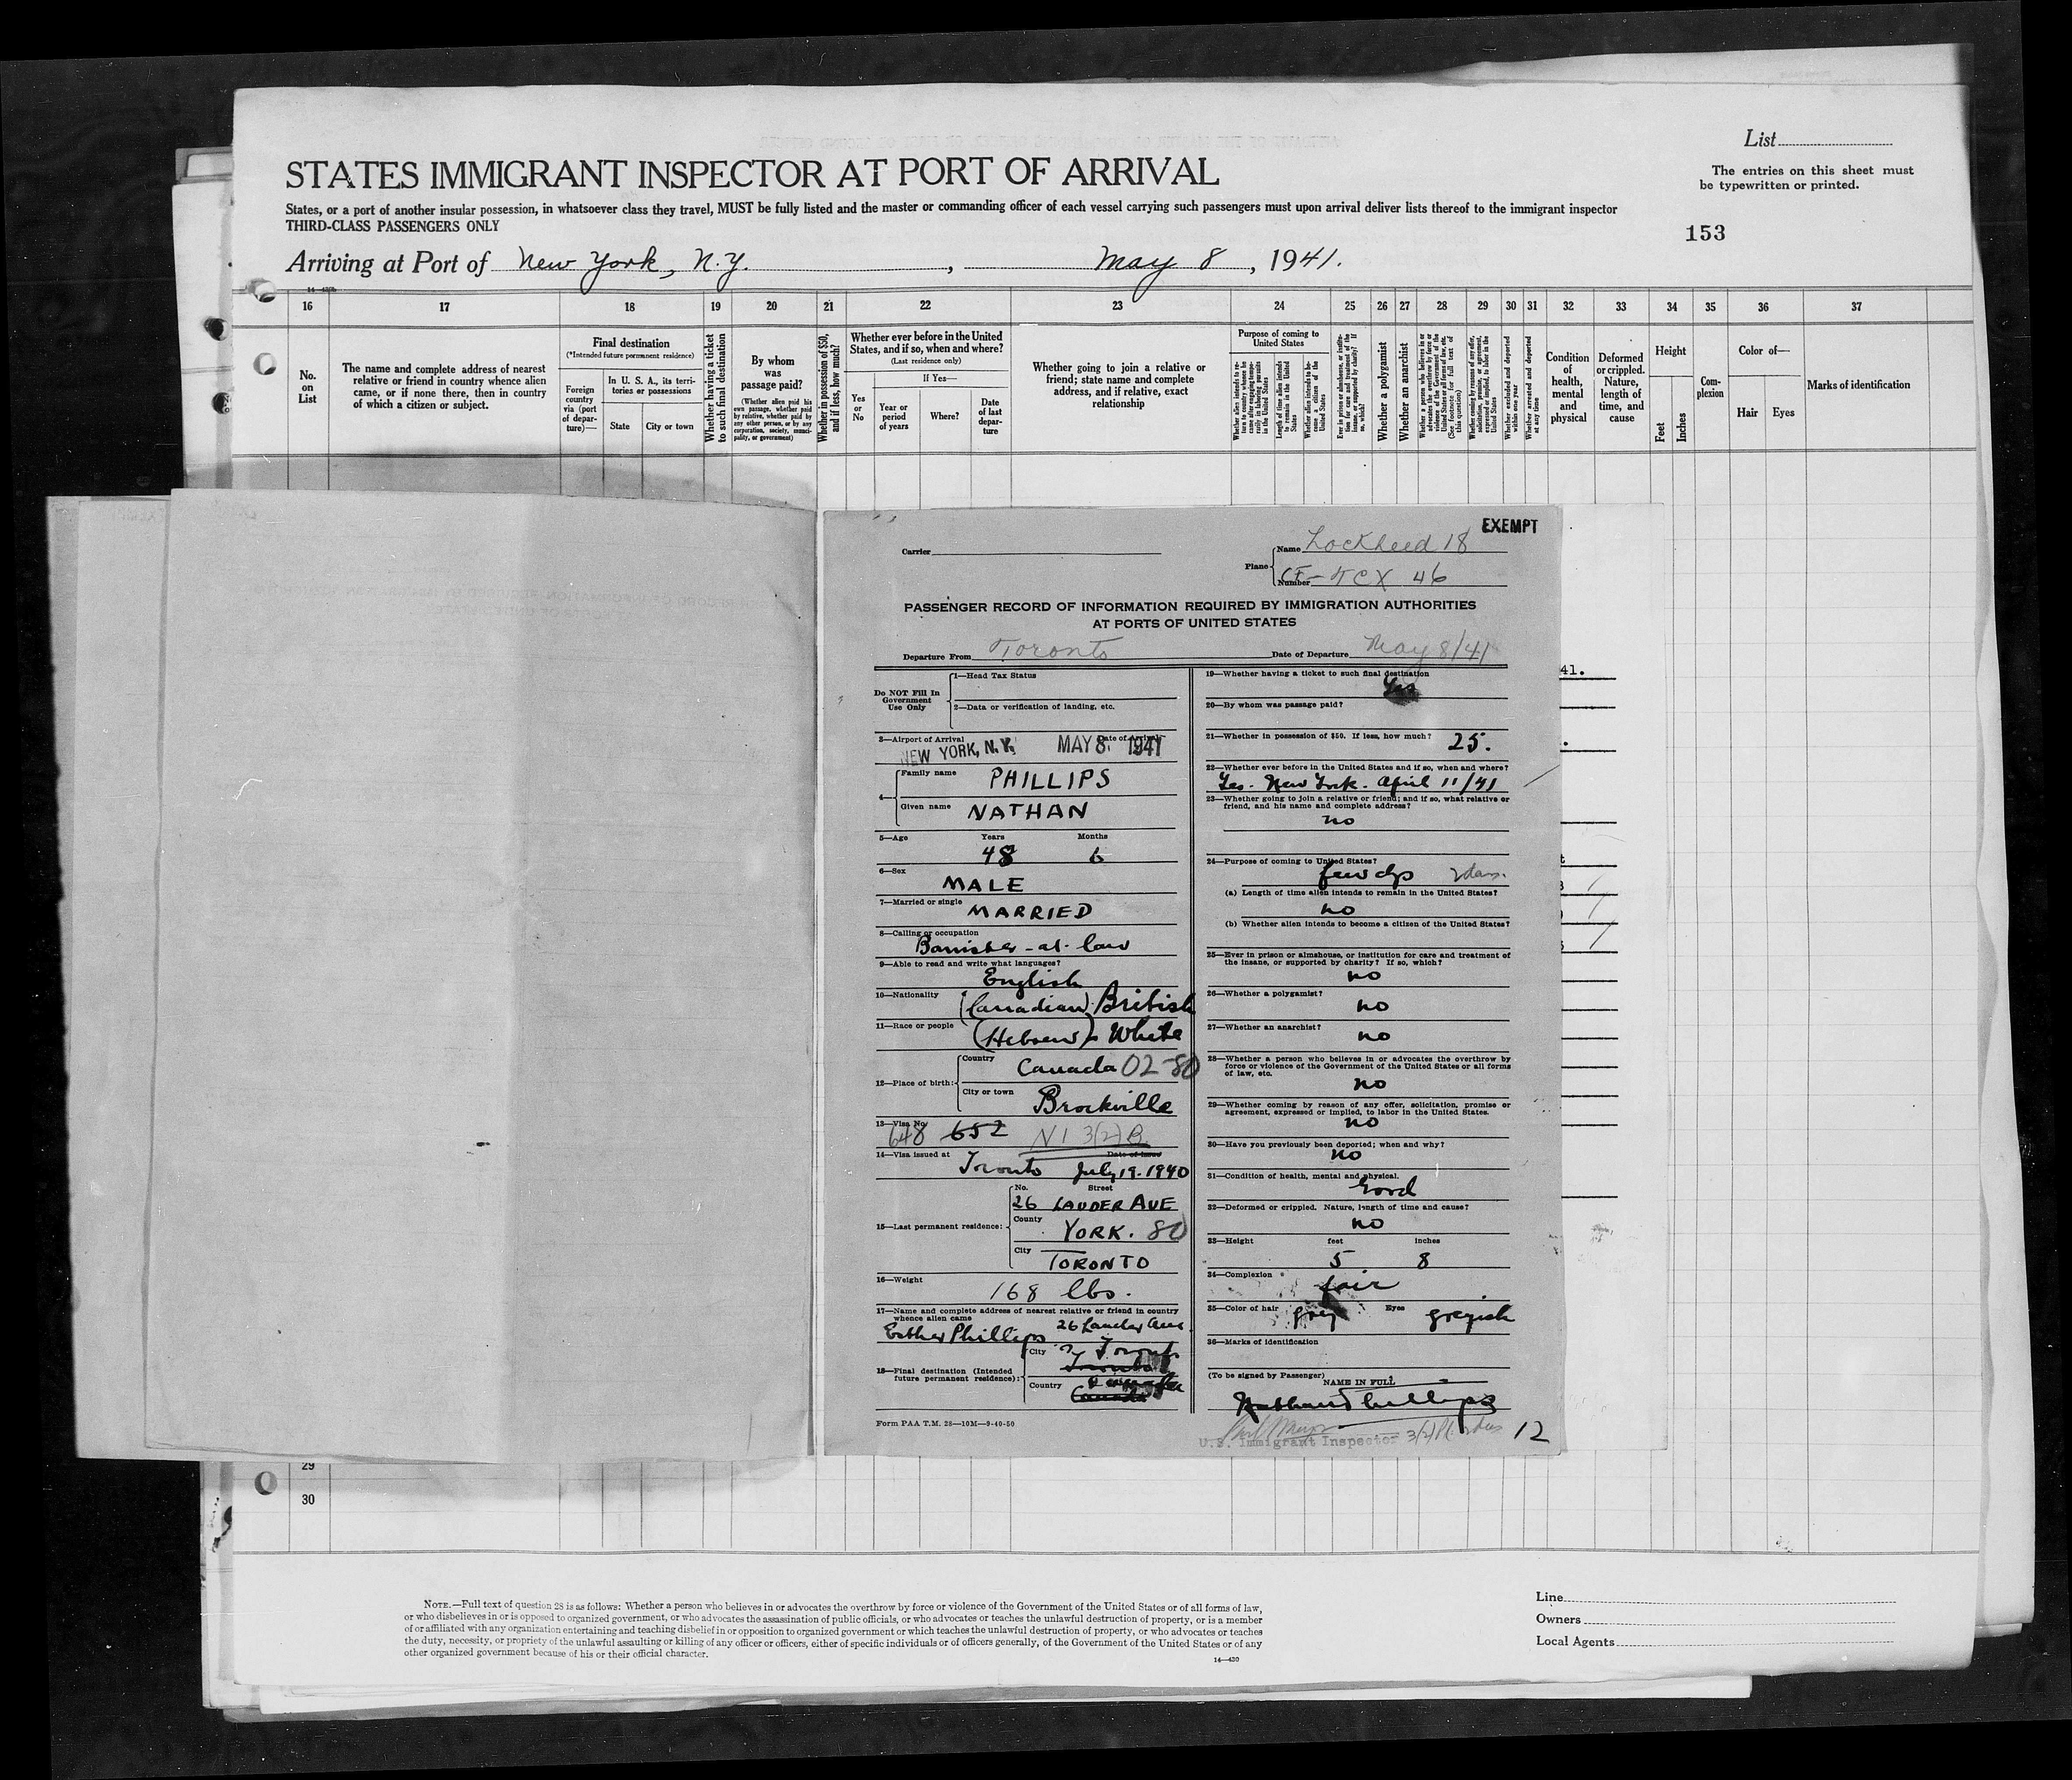 List
STATES IMMIGRANT INSPECTOR AT PORT OF ARRIVAL
The entries on this sheet must
be typewritten or printed.
States, or a port of another insular possession, in whatsoever class they travel, MUST be fully listed and the master or commanding officer of each vessel carrying such passengers must upon arrival deliver lists thereof to the immigrant inspector
THIRD-CLASS PASSENGERS ONLY
153
Arriving at Port of New York, N.Y. , May 8 , 1941.
16 17 18 19 20 21 22 23 24 25 26 27 28 29 30 31 32 33 34 35 36 37
No. on List
The name and complete address of nearest relative or friend in country whence alien came, or if none there, then in country of which a citizen or subject.
Final destination
(*Intended future permanent residence)
Foreign country via (port of departure)—
In U. S. A., its territories or possessions
State
City or town
Whether having a ticket to such final destination
By whom was passage paid?
(Whether alien paid his own passage, whether paid by relative, whether paid by any other person, or by any corporation, society, municipality, or government)
Whether in possession of $50, and if less, how much?
Whether ever before in the United States, and if so, when and where?
(Last residence only)
Yes or No
If Yes—
Year or period of years
Where?
Date of last departure
Whether going to join a relative or friend; state name and complete address, and if relative, exact relationship
Purpose of coming to United States
Whether a polygamist
Whether an anarchist
Condition of health, mental and physical
Deformed or crippled. Nature, length of time, and cause
Height
Feet
Inches
Complexion
Color of—
Hair
Eyes
Marks of identification
EXEMPT
Carrier
Plane Name Lockheed 18
Number CF-TCX 46
PASSENGER RECORD OF INFORMATION REQUIRED BY IMMIGRATION AUTHORITIES
AT PORTS OF UNITED STATES
Departure From Toronto Date of Departure May 8/41
Do NOT Fill In Government Use Only
1—Head Tax Status
2—Data or verification of landing, etc.
3—Airport of Arrival Date of Arrival
NEW YORK, N.Y. MAY 8. 1941
4— Family name PHILLIPS
Given name NATHAN
5—Age Years Months
48 6
6—Sex
MALE
7—Married or single
MARRIED
8—Calling or occupation
Barrister-at-law
9—Able to read and write what languages?
English
10—Nationality (Canadian) British
11—Race or people (Hebrew) White
12—Place of birth: Country Canada 02-80
City or town Brockville
13—Visa No.
648 652 N I 3(2) B
14—Visa issued at Date of Issue
Toronto July 19. 1940
15—Last permanent residence: No. Street
26 LAUDER AVE
County YORK. 80
City TORONTO
16—Weight
168 lbs.
17—Name and complete address of nearest relative or friend in country whence alien came
Esther Phillips 26 Lauder Ave
18—Final destination (Intended future permanent residence): City Toronto
Country Canada
Form PAA T.M. 28—10M—9-40-50
19—Whether having a ticket to such final destination
Yes
20—By whom was passage paid?
21—Whether in possession of $50. If less, how much? 25.
22—Whether ever before in the United States and if so, when and where?
Yes. New York. April 11/41
23—Whether going to join a relative or friend; and if so, what relative or friend, and his name and complete address?
no
24—Purpose of coming to United States?
few dys 2 days.
(a) Length of time alien intends to remain in the United States?
no
(b) Whether alien intends to become a citizen of the United States?
25—Ever in prison or almshouse, or institution for care and treatment of the insane, or supported by charity? If so, which?
no
26—Whether a polygamist?
no
27—Whether an anarchist?
no
28—Whether a person who believes in or advocates the overthrow by force or violence of the Government of the United States or all forms of law, etc.
no
29—Whether coming by reason of any offer, solicitation, promise or agreement, expressed or implied, to labor in the United States.
no
30—Have you previously been deported; when and why?
no
31—Condition of health, mental and physical.
Good
32—Deformed or crippled. Nature, length of time and cause?
no
33—Height feet inches
5 8
34—Complexion
fair
35—Color of hair grey Eyes greyish
36—Marks of identification
(To be signed by Passenger) NAME IN FULL
Nathan Phillips
U.S. Immigrant Inspector 12
41.
29
30
NOTE.—Full text of question 28 is as follows: Whether a person who believes in or advocates the overthrow by force or violence of the Government of the United States or of all forms of law,
or who disbelieves in or is opposed to organized government, or who advocates the assassination of public officials, or who advocates or teaches the unlawful destruction of property, or is a member
of or affiliated with any organization entertaining and teaching disbelief in or opposition to organized government or which teaches the unlawful destruction of property, or who advocates or teaches
the duty, necessity, or propriety of the unlawful assaulting or killing of any officer or officers, either of specific individuals or of officers generally, of the Government of the United States or of any
other organized government because of his or their official character.
14—430
Line
Owners
Local Agents